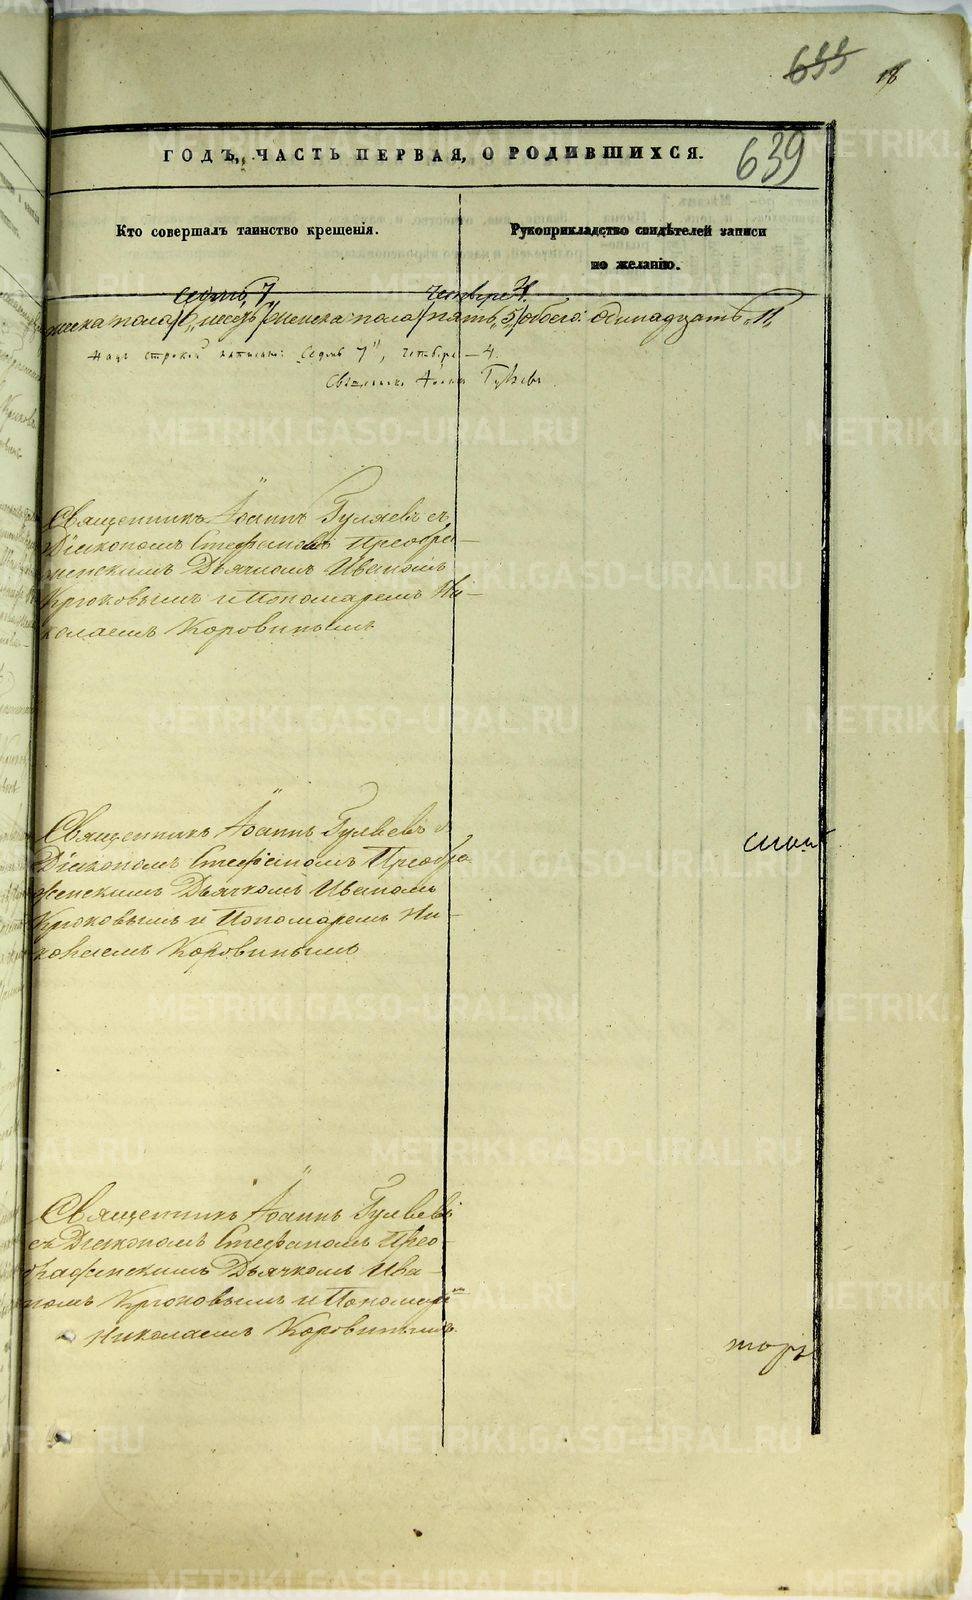 633 18
639
ГОДЪ, ЧАСТЬ ПЕРВАЯ, О РОДИВШИХСЯ.
Кто совершалъ таинство крещенія.
Рукоприкладство свидѣтелей записи
по желанію.
семь, 7 четыре 4.
мужеска пола /6,, шесть/ женска пола /пять, 5/ обоего: одинадцать „11„
Надъ строкой написано: Седмь 7", четыре — 4.
Священникъ Іоаннъ Гуляевъ
Священникъ Іоаннъ Гуляевъ съ
Діакономъ Стефаномъ Преобра-
женскимъ Дьячкомъ Иваномъ
Крюковымъ и Пономаремъ Ни-
колаемъ Коровинымъ
Священникъ Іоаннъ Гуляевъ съ
Діакономъ Стефаномъ Преобра-
женскимъ Дьячкомъ Иваномъ
Крюковымъ и Пономаремъ Ни-
колаемъ Коровинымъ
Священникъ Іоаннъ Гуляевъ
съ Діакономъ Стефаномъ Прео-
браженскимъ Дьячкомъ Ива-
номъ Крюковымъ и Пономаремъ
Николаемъ Коровинымъ.
METRIKI.GASO-URAL.RU